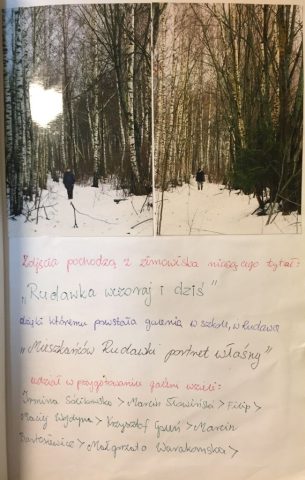 Zdjęcia pochodzą z zimowiska niosącego tytuł:
„Rudawka wczoraj i dziś”
dzięki któremu powstała galeria w szkole, w Rudawce
„Mieszkańców Rudawki portret własny”
udział w przygotowaniu galerii wzięli:
Irmina > Marcin Słowiński > Filip >
Maciej > Krzysztof > Marcin
Bartosiewicz > Małgorzata Warakomska >